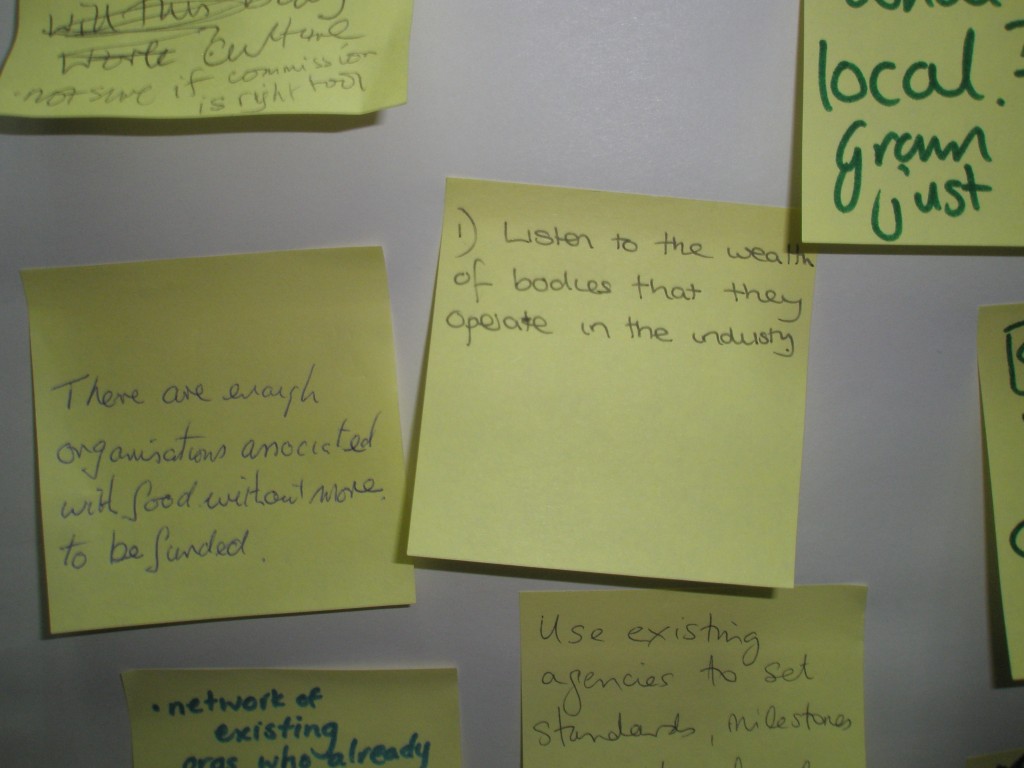 will this
work culture
· not sure if commission
is right tool
local.
Grown
just
1) Listen to the wealth
of bodies that they
operate in the industry
There are enough
organisations associated
with food without more
to be funded.
Use existing
agencies to set
standards, milestones
· network of
existing
orgs who already